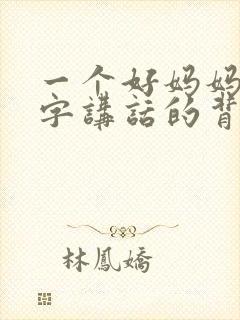 一个好妈妈
字講話的背
林鳳嬌